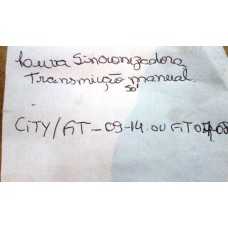 Luva Sincronizadora
Transmição manual.
CITY/FIT - 09-14. OU FIT 07/08